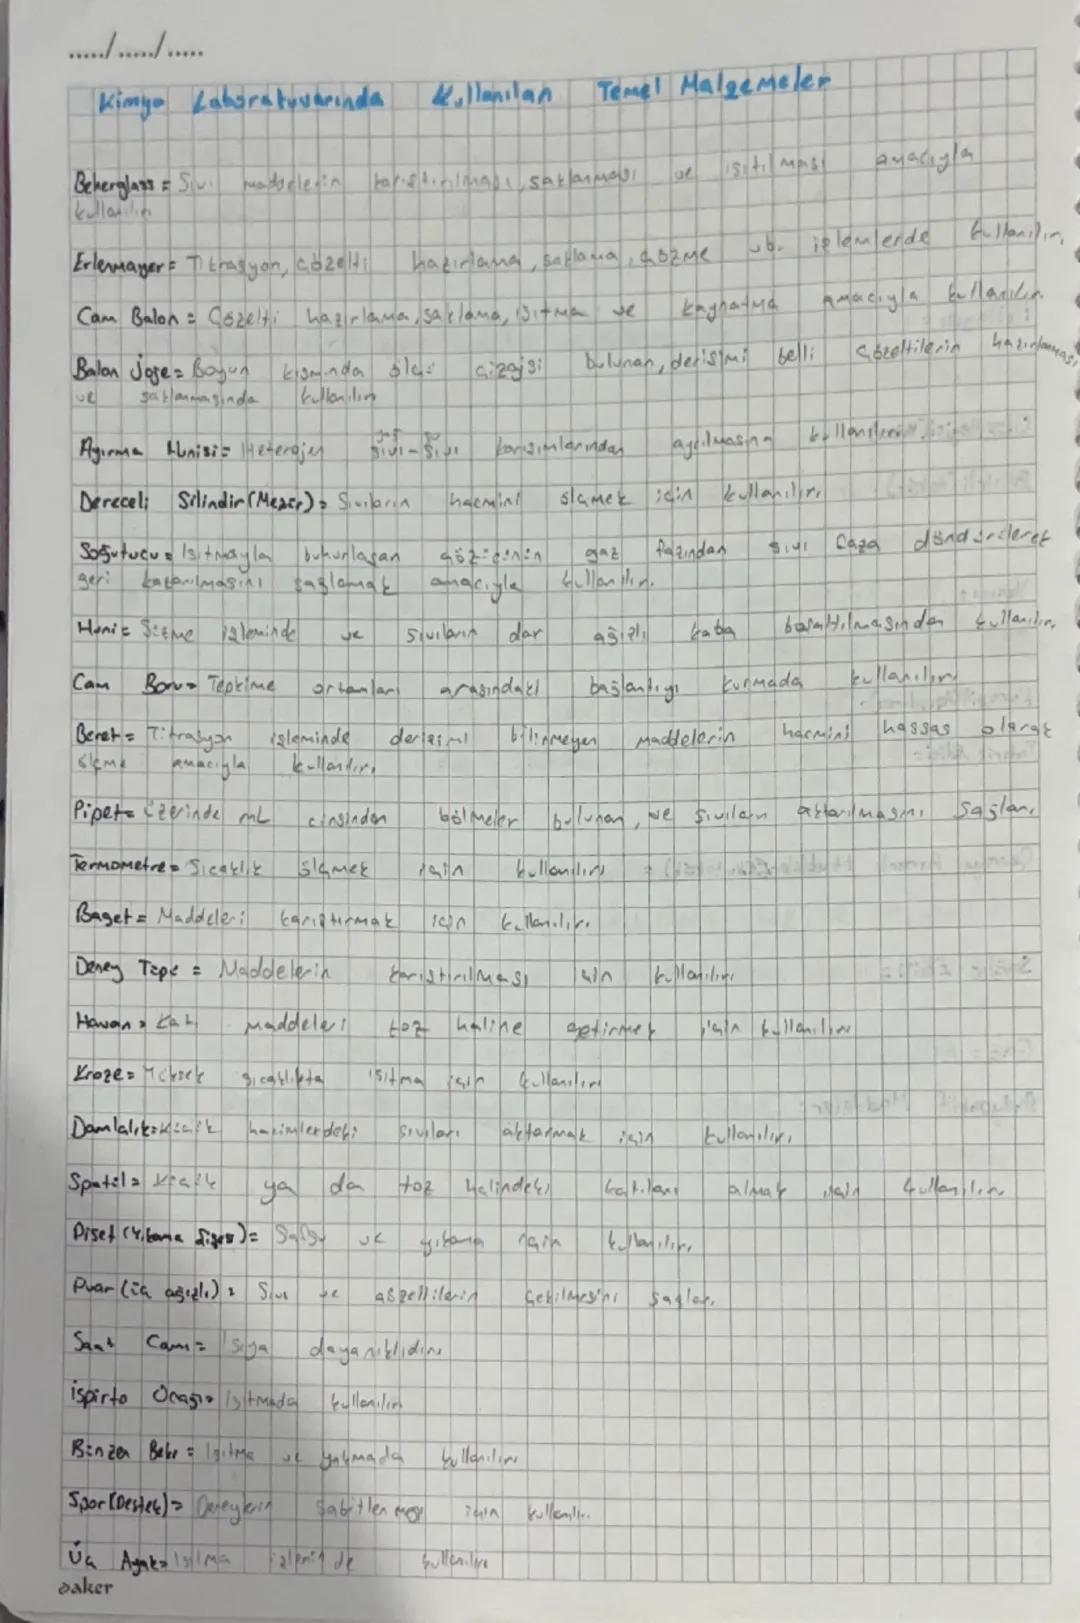 ...../...../.....
Kimya Laboratuvarında Kullanılan Temel Malzemeler
Beherglass = Sıvı maddelerin karıştırılması, saklanması ve ısıtılması amacıyla
kullanılır.
Erlenmayer = Titrasyon, çözelti hazırlama, saklama, çözme vb. işlemlerde kullanılır.
Cam Balon = Çözelti hazırlama, saklama, ısıtma ve kaynatma amacıyla kullanılır.
Balon joje = Boyun kısmında ölçü çizgisi bulunan, derişimi belli çözeltilerin hazırlanması
ve saklanmasında kullanılır
Ayırma Hunisi = Heterojen sıvı-sıvı karışımlarından ayrılmasına kullanılır.
Dereceli Silindir (Mezür) = Sıvıların hacmini ölçmek için kullanılır.
Soğutucu = Isıtmayla buharlaşan çözücünün gaz fazından sıvı faza döndürülerek
geri kazanılmasını sağlamak amacıyla kullanılır.
Huni = Süzme işleminde ve sıvıların dar ağızlı kaba boşaltılmasından kullanılır.
Cam Boru = Tepkime ortamları arasındaki bağlantıyı kurmada kullanılır.
Büret = Titrasyon işleminde derişimi bilinmeyen maddelerin hacmini hassas olarak
ölçme amacıyla kullanılır.
Pipet = Üzerinde mL cinsinden bölmeler bulunan, ve sıvıların aktarılmasını sağlar.
Termometre = Sıcaklık ölçmek için kullanılır.
Baget = Maddeleri karıştırmak için kullanılır.
Deney Tüpü = Maddelerin karıştırılması için kullanılır.
Havan = Katı maddeleri toz haline getirmek için kullanılır
Kroze = Yüksek sıcaklıkta ısıtma için kullanılır
Damlalık = Küçük hacimlerdeki sıvıları aktarmak için kullanılır.
Spatül = Küçük ya da toz halindeki katıları almak için kullanılır
Piset (Yıkama Şişesi) = ve yıkama için kullanılır.
Puar (üç ağızlı) = Sıvı ve çözeltilerin çekilmesini sağlar.
Saat Camı = Isıya dayanıklıdır.
ispirto Ocağı = Isıtmada kullanılır
Bünzen Beki = Isıtma ve yakmada kullanılır
Spor (Destek) = Deneylerin sabitlenmesi için kullanılır.
Üç Ayak = Isıtma işleminde kullanılır
daker